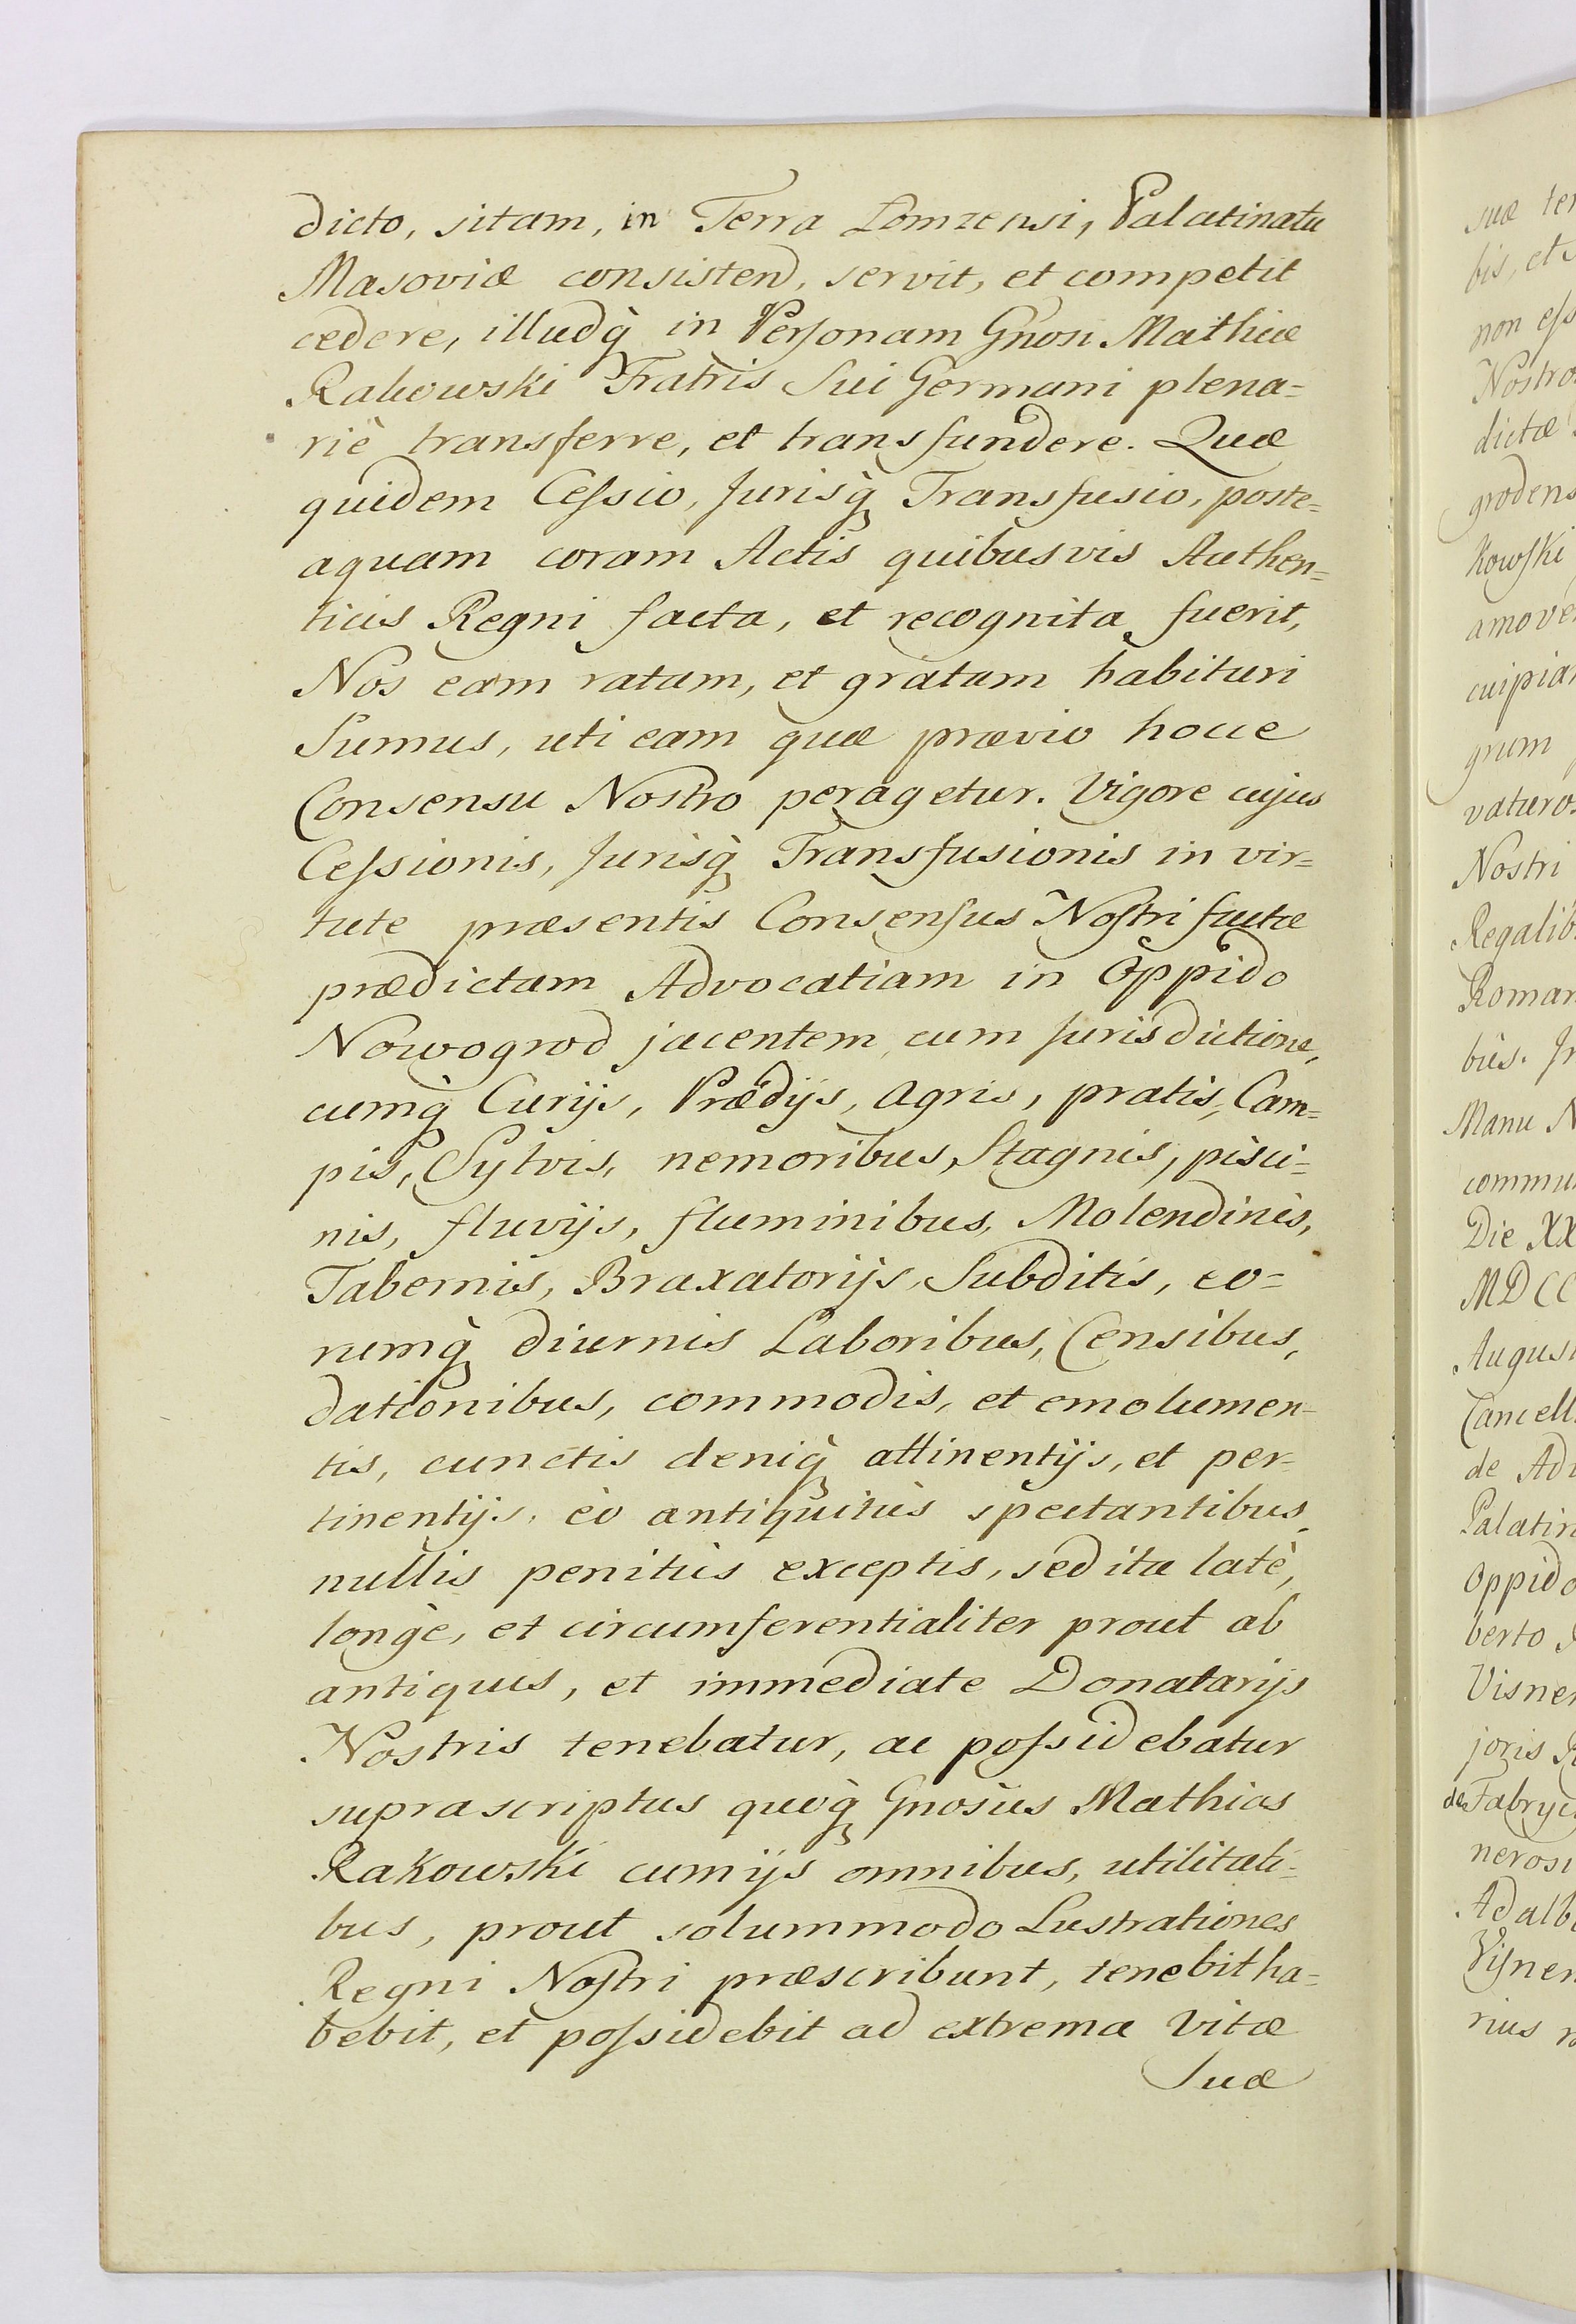 dicto, sitam, in Terra Lomzensi, Palatinatu
Masoviæ consistend, servit, et competit
cedere, illudq̀ in Personam Gnosi Mathiæ
Rakowski Fratris Sui Germani plena=
riè transferre, et transfundere. Quæ
quidem Cessio, Jurisq̀ Transfusio, poste=
aquam coram Actis quibusvis Authen=
ticis Regni facta, et recognita fuerit,
Nos eam ratam, et gratam habituri
Sumus, uti eam quæ prævio hocce
Consensu Nostro peragetur. Vigore cujus
Cessionis, Jurisq̀ Transfusionis in vir=
tute præsentis Consensus Nostri factæ
prædictam Advocatiam in Oppido
Nowogrod jacentem cum Jurisdictione,
cumq̀ Curijs, Prædijs, Agris, pratis, Cam=
pis, Sylvis, nemoribus, Stagnis, pisci=
nis, fluvijs, fluminibus, Molendinis,
Tabernis, Braxatorijs, Subditis, eo=
rumq̀ diurnis Laboribus, Censibus,
dationibus, commodis, et emolumen=
tis, cunctis deniq̀ attinentijs, et per=
tinentijs, eò antiquitùs spectantibus,
nullis penitùs exceptis, sed ita latè,
longè, et circumferentialiter prout ab
antiquis, et immediate Donatarijs
Nostris tenebatur, ac possidebatur
suprascriptus quoq̀ Gnosus Mathias
Rakowski cum ijs omnibus, utilitati=
bus, prout solummodo Lustrationes
Regni Nostri præscribunt, tenebit ha=
bebit, et possidebit ad extrema Vitæ
Suæ
suæ ter
bis, et
non ess
Nostro
dictæ
grodens
kowski
amove
cuipia
grum
vaturo
Nostri
Regalib
Roman
bus. In
Manu N
commu
Die XX
MDCC
August
Cancell
de Adv
Palatin
Oppido
berto
Visne
joris R
de Fabryc
nerosi
Adalb
Visner
rius